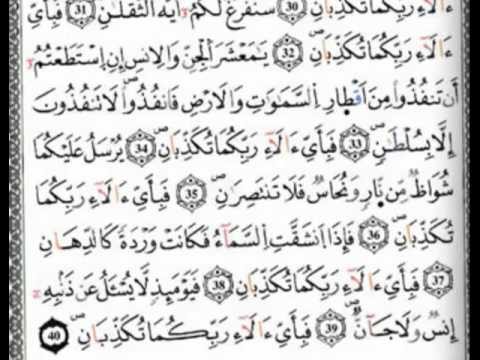 ءَالَآءِ رَبِّكُمَا تُكَذِّبَانِ 30 سَنَفْرُغُ لَكُمُۥٓ أَيُّهَ اَ۬لثَّقَلَٰنِ 31 فَبِأَيِّ
ءَالَآءِ رَبِّكُمَا تُكَذِّبَانِ 32 يَٰمَعْشَرَ اَ۬لْجِنِّ وَالِانسِ إِنِ اِ۪سْتَطَعْتُمُۥٓ
أَن تَنفُذُواْ مِنَ اَقْطٰارِ اِ۬لسَّمَٰوَٰتِ وَالَارْضِ فَانفُذُواْ لَا تَنفُذُونَ
إِلَّا بِسُلْطَٰنٍ 33 فَبِأَيِّ ءَالَآءِ رَبِّكُمَا تُكَذِّبَانِ 34 يُرْسَلُ عَلَيْكُمَا
شُوَاظٌ مِّن نَّارٍ وَنُحَاسٌ فَلَا تَنتَصِرَانِ 35 فَبِأَيِّ ءَالَآءِ رَبِّكُمَا
تُكَذِّبَانِ 36 فَإِذَا اَ۪نشَقَّتِ اِ۬لسَّمَآءُ فَكَانَتْ وَرْدَةً كَالدِّهَانِ
37 فَبِأَيِّ ءَالَآءِ رَبِّكُمَا تُكَذِّبَانِ 38 فَيَوْمَئِذٍ لَّا يُسْـَٔلُ عَن ذَنۢبِهِۦٓ
إِنسٌ وَلَا جَآنٌّ 39 فَبِأَيِّ ءَالَآءِ رَبِّكُمَا تُكَذِّبَانِ 40